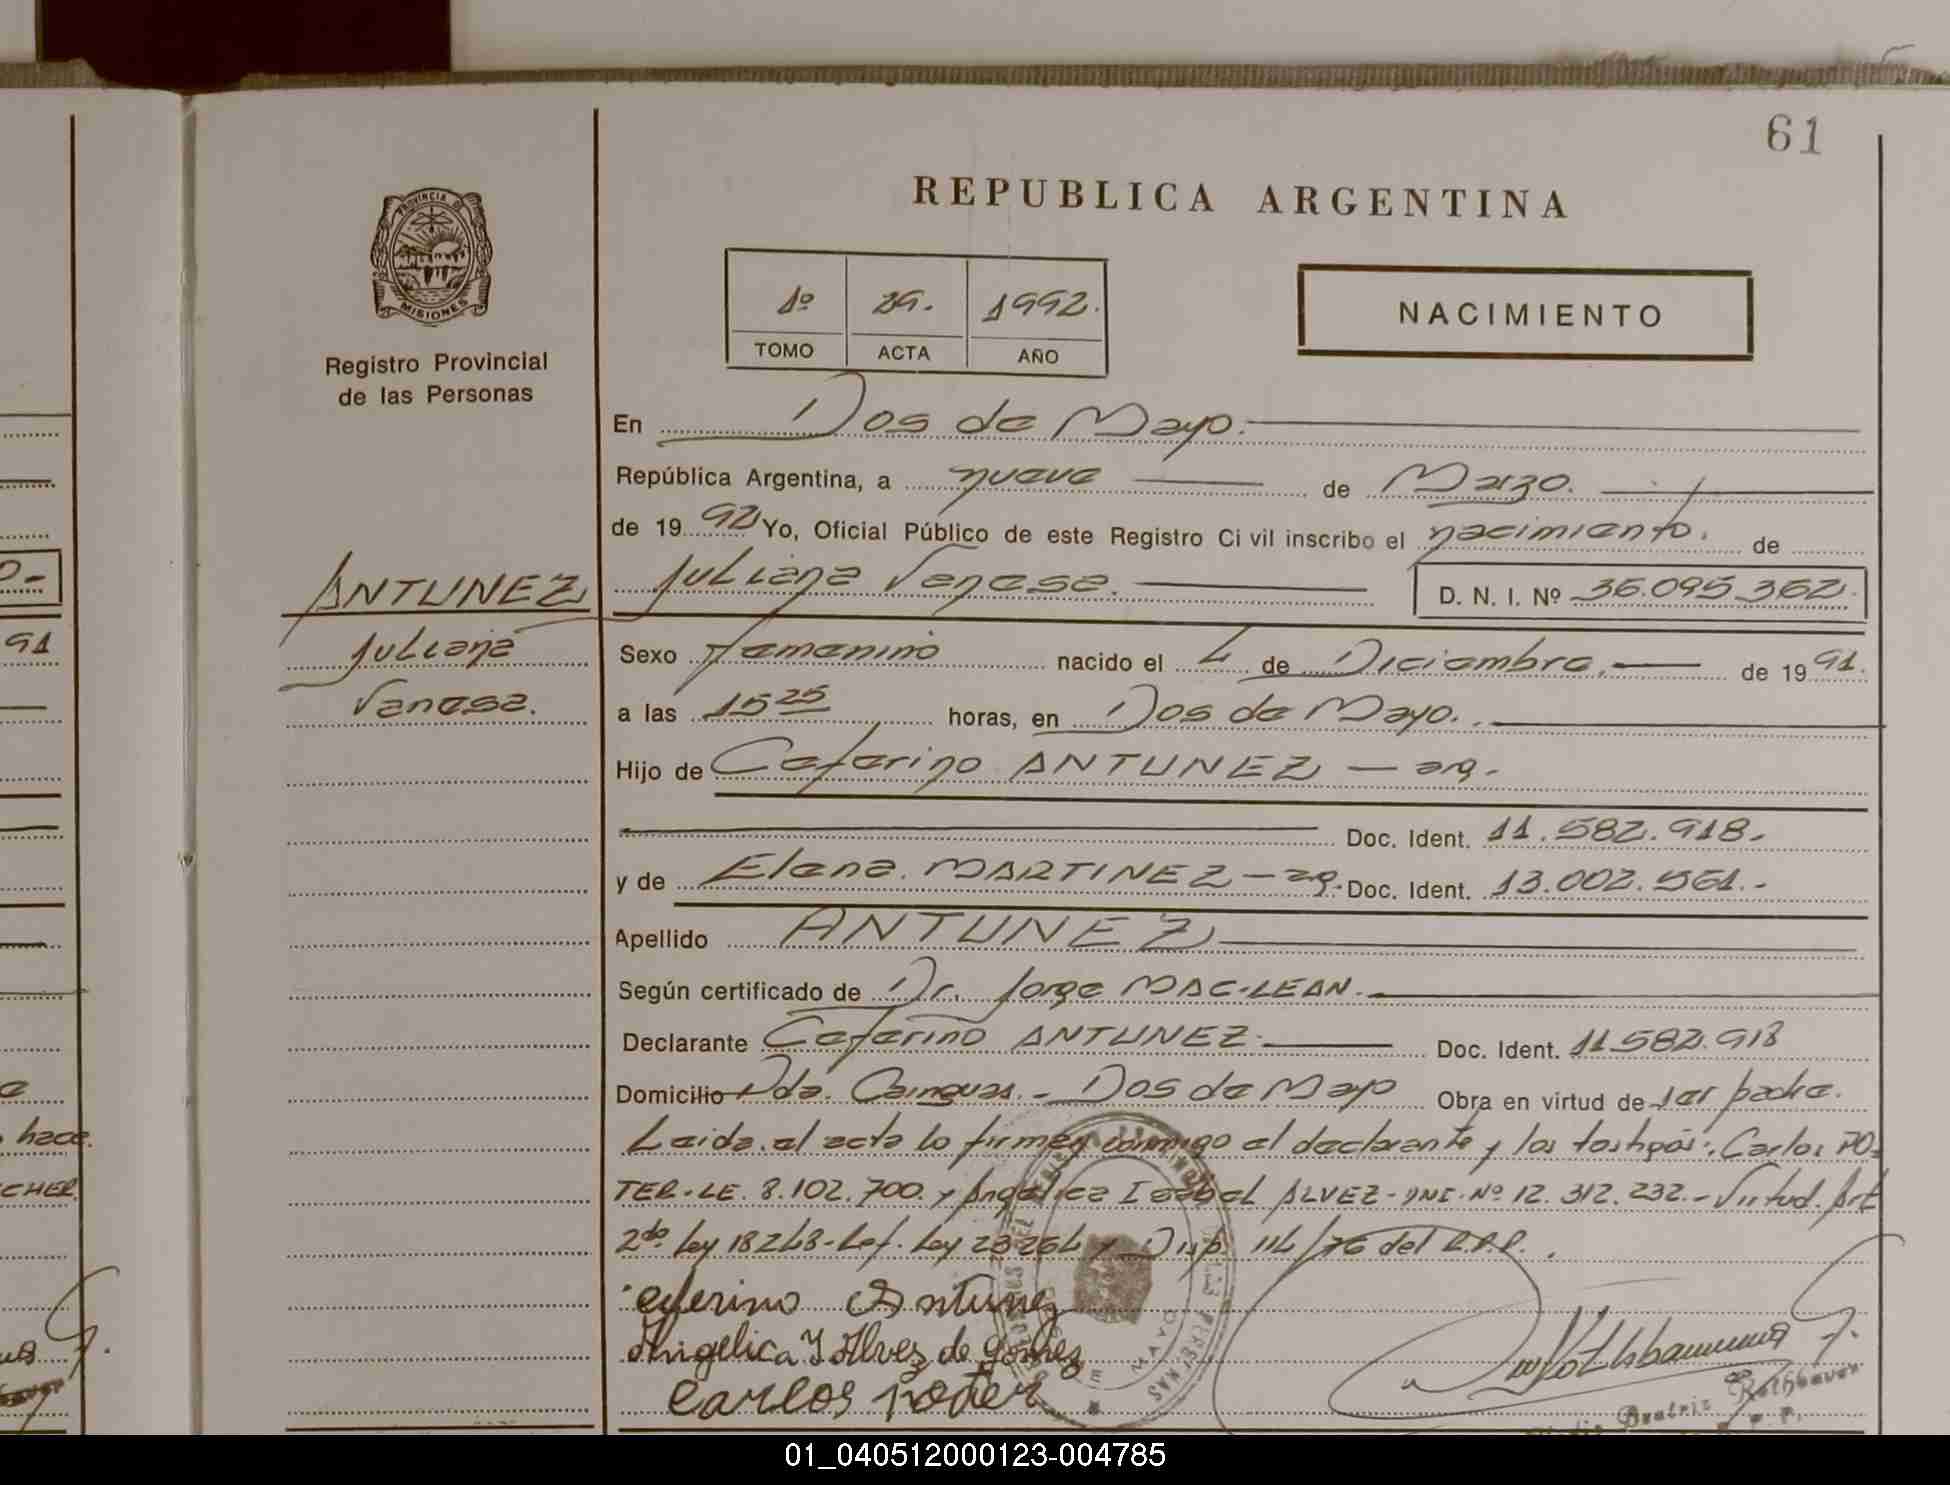 61
REPUBLICA ARGENTINA
PROVINCIA DE
MISIONES
Registro Provincial
de las Personas
1º 29. 1992.
TOMO ACTA AÑO
NACIMIENTO
En Dos de Mayo.
República Argentina, a nueve de Marzo.
de 1992 Yo, Oficial Público de este Registro Ci vil inscribo el nacimiento. de
ANTUNEZ
Juliana
Vanesa.
Juliana Vanesa. D. N. I. Nº 36.095.362.
Sexo Femenino nacido el 4 de Diciembre. de 1991.
a las 15 25 horas, en Dos de Mayo.
Hijo de Ceferino ANTUNEZ — arg.
Doc. Ident. 11.582.918.
y de Elena MARTINEZ - arg. Doc. Ident. 13.002.561.-
Apellido ANTUNEZ
Según certificado de Dr. Jorge MAC-LEAN.
Declarante Ceferino ANTUNEZ. Doc. Ident. 11.582.918
Domicilio Pda. Cainguas. - Dos de Mayo Obra en virtud de ser padre.
Leida el acta lo firman conmigo el declarante y los testigos: Carlos PO-
TER-LE. 8.102.700. y Angelica Isabel ALVEZ-DNI-Nº 12.312.232.- Virtud. Art
2do. Ley 18248-Ley 23264 y Disp. 114/76 del R.P.P..
Ceferino Antunez
Angelica Y Alvez de Gomez
Carlos Poter
Beatriz Rothbauer
91
hace.
CHER.
01_040512000123-004785